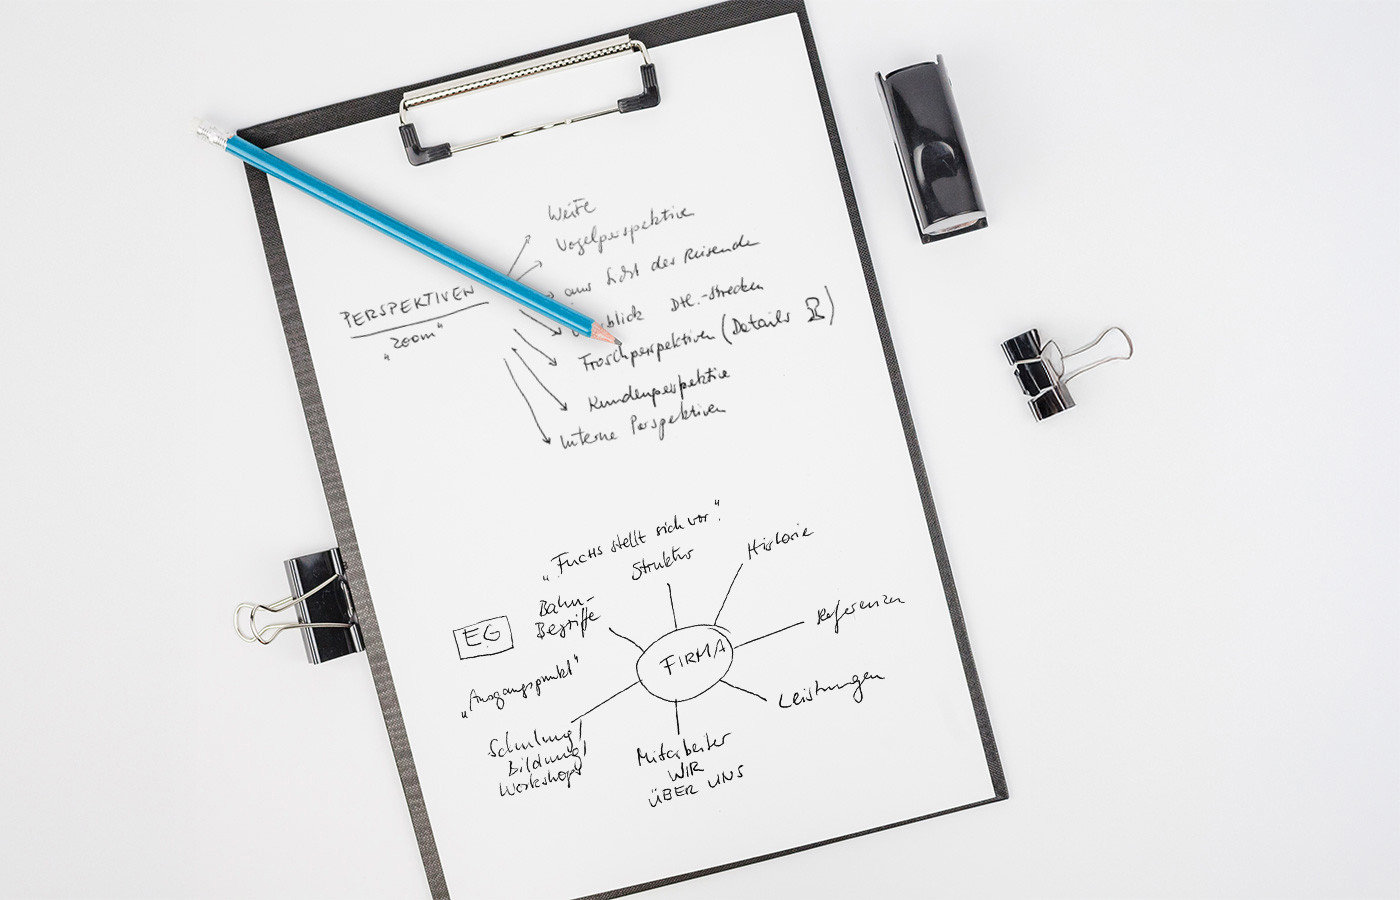 Weite
Vogelperspektive
aus Sicht der Reisende
PERSPEKTIVEN
"Zoom"
blick Dtl.-strecken
Froschperspektiven (Details
Kundenperspektive
Interne Perspektiven
„Fuchs stellt sich vor".
Struktur
Historie
Bahn-
Begriffe
EG
Referenzen
FIRMA
„Ausgangspunkt"
Leistungen
Schulung/
Bildung/
Workshops
Mitarbeiter
WIR
ÜBER UNS